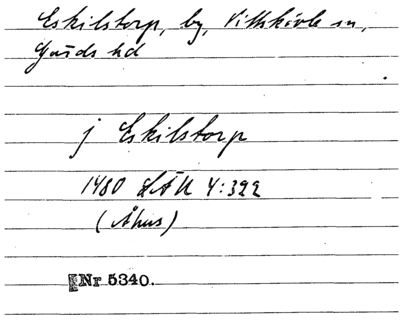 Eskilstorp, by, Vittskövle sn,
Gärds hd
j Eskilstorp
1480 LÄU 4:322
(Åhus)
Nr 5340.